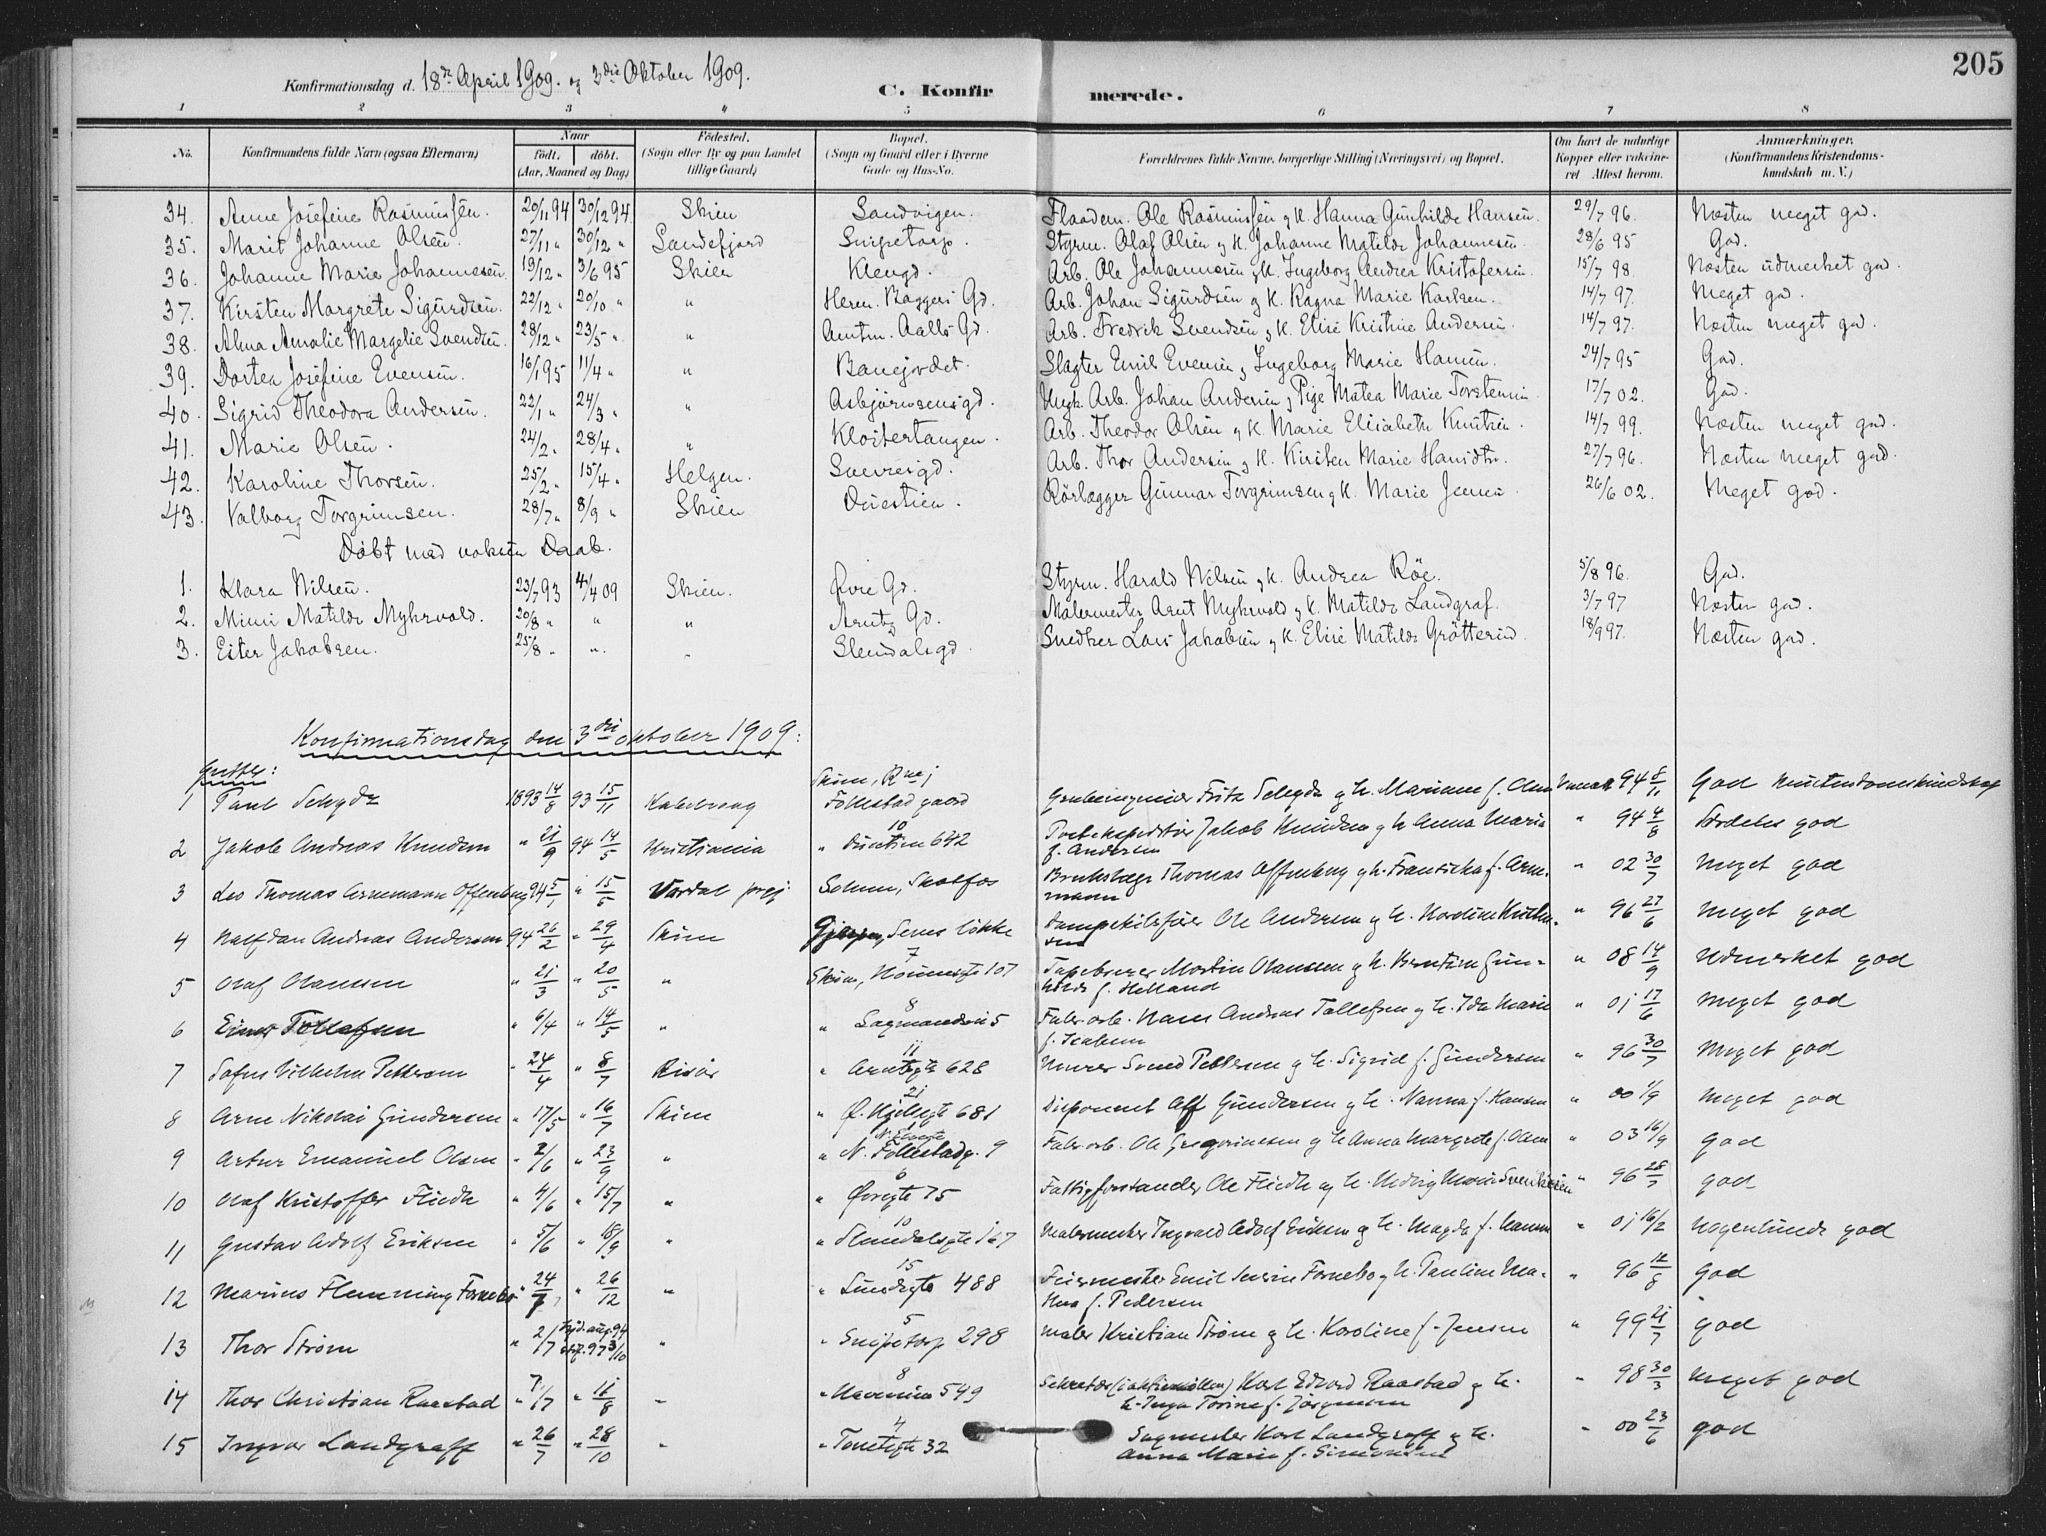 205
Konfirmationsdag d. 18de April 1909. og 3die Oktober 1909.
C. Konfirmerede.
1 2 3 4 5 6 7 8
No. Konfirmandens fulde Navn (ogsaa Efternavn) Naar födt. döbt. (Aar, Maaned og Dag) Födested. (Sogn eller By og paa Landet tillige Gaard) Bopæl. (Sogn og Gaard eller i Byerne Gade og Hus-No. Forældrenes fulde Navne, borgerlige Stilling (Næringsvei) og Bopæl. Om havt de naturlige Kopper eller vaccineret Attest herom. Anmærkninger. (Konfirmandens Kristendomskundskab m. V.)
34. Anne Josefine Rasmussen. 20/11 94 30/12 94. Skien Sandvigen. Flaadem. Ole Rasmussen og H. Hanna Gunhilde Hansen. 29/7 96. Næsten meget god.
35. Marit Johanne Olsen. 27/11 " 30/12 " Sandefjord Snipetorp. Styrm. Olaf Olsen og H. Johanne Matilde Johannesen. 28/6 95 God.
36. Johanne Marie Johannessen. 19/12 " 3/6 95 Skien Klengd. Arb. Ole Johannesen og H. Ingeborg Andrea Kristofersen. 15/7 98. Næsten udmerket god.
37. Kirsten Margrete Sigurdsen. 22/12 " 20/10 " " Herm. Baggers Gd. Arb. Johan Sigurdsen og H. Ragna Marie Karlsen. 14/7 97. Meget god.
38. Alma Amalie Margelie Svendsen. 28/12 " 23/5 " " Amtm. Aalls Gd. Arb. Fredrik Svendsen og H. Elise Kristine Andersen. 14/7 97. Næsten meget god.
39. Dortea Josefine Evensen. 16/1 95 11/4 " " Banejordet. Slagter Emil Evensen og Ingeborg Marie Hansen. 24/7 95 God.
40. Sigrid Theodora Andersen. 22/1 " 24/3 " " Asbjörnsensgd. Ungk. Arb. Johan Andersen og Pige Matea Marie Torstensen 17/7 02. God.
41. Marie Olsen. 24/2 " 28/4 " " Klostertangen. Arb. Theodor Olsen og H. Marie Elisabeth Knutsen. 14/7 99. Næsten meget god.
42. Karoline Thorsen. 25/2 " 15/4 " Helgen. Sveresgd. Arb. Thor Andersen og H. Kirsten Marie Hansdtr. 27/7 96. Næsten meget god.
43. Valborg Torgrimsen. 28/7 " 8/9 " Skien Duestien. Rörlægger Gunnar Torgrimsen og H. Marie Jensen. 26/6 02. Meget god.
Döbt med voksen Daab.
1. Klara Nilsen. 23/7 93 4/4 09 Skien. Øvre Gd. Styrm. Harald Nilsen og H. Andrea Röe. 5/8 96. God.
2. Mimi Matilde Myhrvold. 20/8 " " " Arntz Gd. Malermester Arnt Myhrvold og H. Matilde Landgraf. 3/7 97 Næsten god.
3. Ester Jakobsen. 25/8 " " " Slemdalsgd. Snedker Lars Jakobsen og H. Elise Matilde Gröttereid. 18/9 97. Næsten god.
Konfirmationsdag den 3die oktober 1909:
Gutter:
1 Paul Schyda 1893 14/8 93 15/11 Skien, Follestad gaard Grubeingeniør Fritz og H. Mariane f. Olsen 94 8/11 God Kristendomskundskap
2 Jakob Andreas Knudsen " 21/9 94 14/5 Kristiania " 10 Duestien 642 Postekspeditør Jakob Knudsen og H. Anna Marie f. Andersen " 94 4/8 Særdeles god
3 Leo Thomas Arnemann Offenberg 94 5/1 " 15/5 Vardal prgj. Solum, Skotfos Thomas Offenberg og H. Fransiska f. Arnemann " 02 30/7 Meget god
4 Halfdan Andreas Andersen 94 26/2 " 29/4 Skien Gjerpen, løkke Dampskibsfører Ole Andersen og H. " 96 27/6 Meget god
5 Olaf Olaussen " 21/3 " 20/5 " Skien, 7 107 Martin Olaussen og H. Berntine Gunhilde f. Helland " 08 14/9 Udmerket god
6 Einar Tollefsen " 6/4 " 14/5 " " 8 5 Fabr. arb. Hans Andreas Tollefsen og H. Ida Marie f. " 01 17/6 Meget god
7 Sofus Vilhelm Pettersen " 24/4 " 8/7 Risør " 11 Arntzgt 628 Murer Svend Pettersen og H. Sigrid f. Gundersen " 96 30/7 Meget god
8 Arne Nikolai Gundersen " 17/5 " 16/7 Skien " 21 Ø. 681 Disponent Alf Gundersen og H. Nanna f. Hansen " 00 1/9 Meget god
9 Artur Emanuel Olsen " 2/6 " 23/9 " " N. Follestadg. 9 Fabr. arb. Ole Gregoriussen og H. Anna Margrete f. Olsen " 03 16/9 god
10 Olaf Kristoffer Fliedh " 4/6 " 15/7 " " 6 Øvregt 75 Fattigforstander Ole Fliedh og H. Hedvig Marie " 96 28/7 god
11 Gustav Adolf Eriksen " 5/6 " 18/9 " " 10 Slemdalsgt 167 Malermester Ingvald Adolf Eriksen og H. Magda f. Hansen " 01 16/2 Nogenlunde god
12 Marius Flemming Fornebo " 24/6 " 26/12 " " 15 Lundegt 488 Feiermester Emil Severin Fornebo og H. Pauline Mathea f. Pedersen " 96 12/8 god
13 Thor Strøm " 2/7 Hjd. aug. 94 stf. 97 3/10 " " 5 Snipetorp 298 Maler Kristian Strøm og H. Karoline f. Jensen " 99 21/7 god
14 Thor Christian Raastad " 7/7 " 11/8 " " 8 549 Sekretær (i aktiemøllen) Karl Edvard Raastad og H. Inga Torine f. Jørgensen " 98 30/3 Meget god
15 Ingvar Landgraff " 26/7 " 28/10 " " 4 32 Sagmester Karl Landgraff og H. Anna Marie f. Simonsen " 00 23/6 god